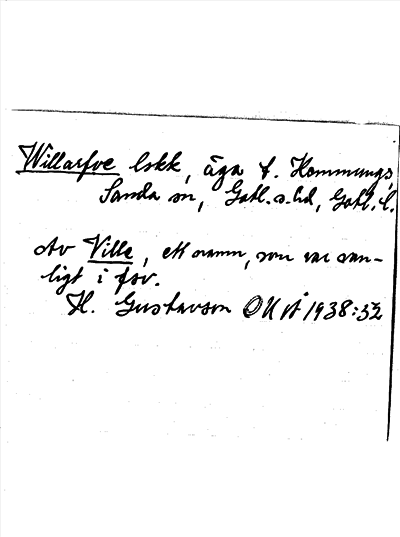 Willarfve lskk, äga t. Kommungs,
Sanda sn, Gotl. s. hd, Gotl. l.
Av Ville, ett namn, som var van-
ligt i fsv.
H. Gustavson OUÅ 1938:32